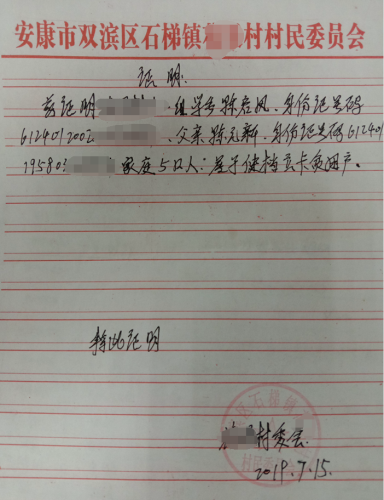 安康市双滨区石梯镇 村村民委员会
证明
兹证明 组学生陈启凤、身份证号码
612401200 、父亲陈元新、身份证号码612401
19580 家庭5口人：属于建档立卡贫困户。
特此证明
村委会
2019.7.15.
区石梯镇
村民委